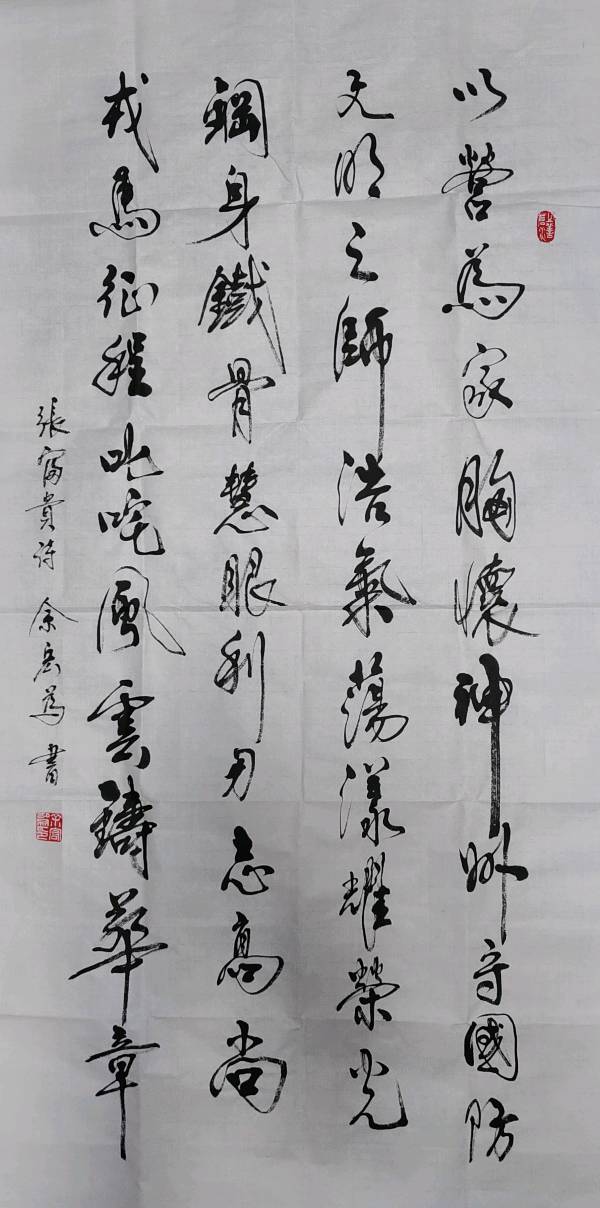 以營為家胸懷神州守國防
文明之師浩氣蕩漾耀榮光
鋼身鐵骨慧眼利刃志高尚
戎馬征程叱咤風雲鑄華章
張富貴詩 余岳為 書